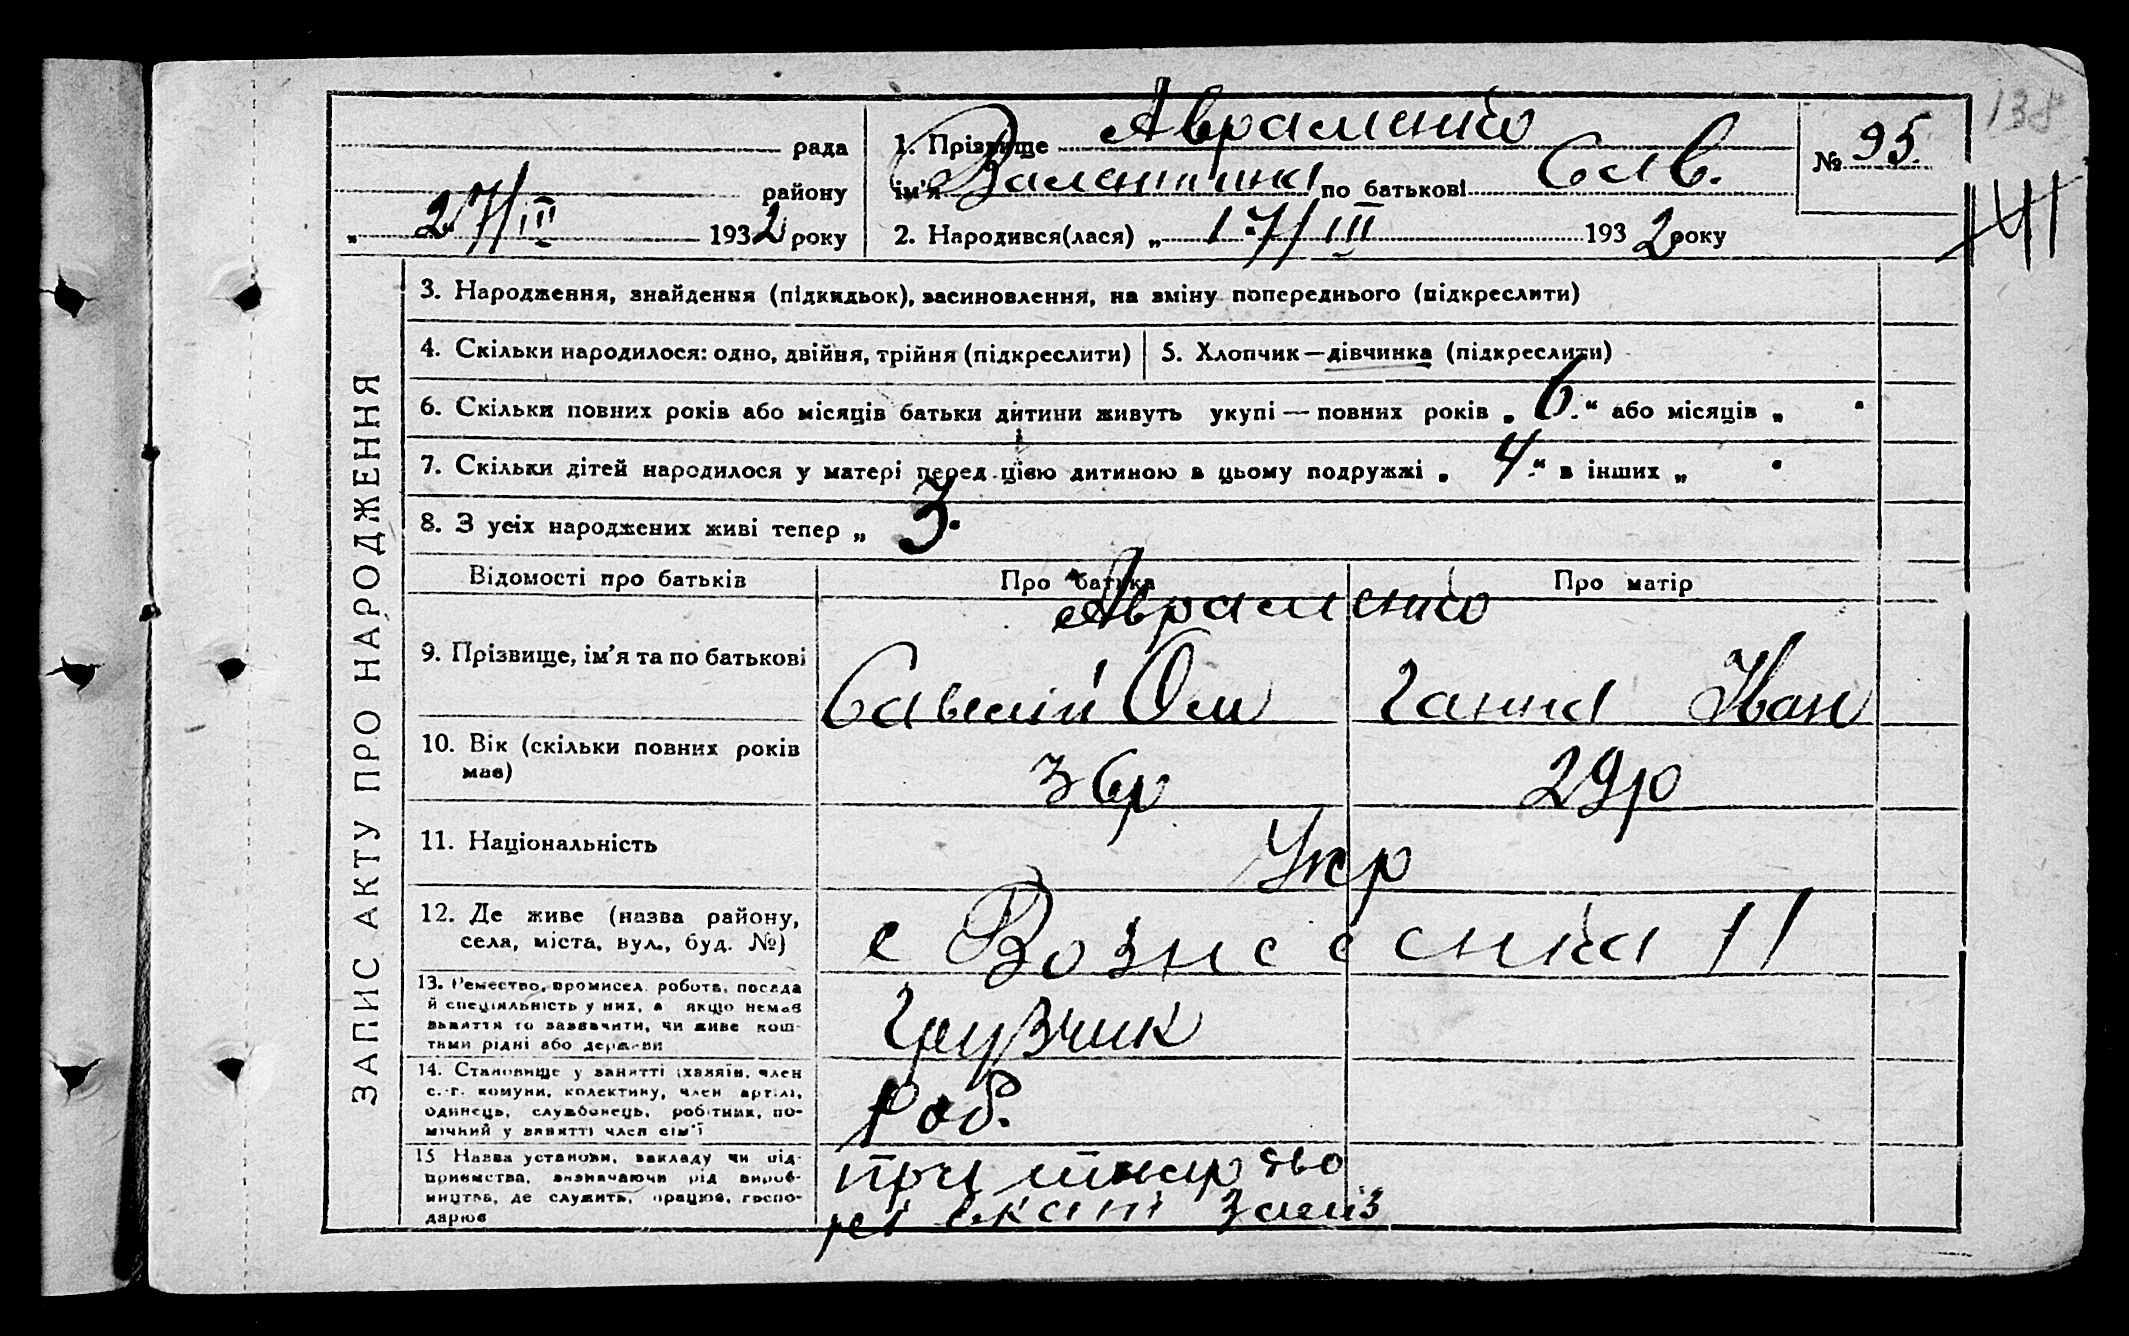 138
рада
району
„ 27/III 1932 року
1. Прізвище Авраменко
ім'я Валентина по батькові Сав.
2. Народився(лася) „ 17/III 1932 року
№ 95
141
ЗАПИС АКТУ ПРО НАРОДЖЕННЯ
3. Народження, знайдення (підкидьок), васиновлення, на зміну попереднього (підкреслити)
4. Скільки народилося: одно, двійня, трійня (підкреслити)
5. Хлопчик — дівчинка (підкреслити)
6. Скільки повних років або місяців батьки дитини живуть укупі — повних років „ 6 “ або місяців „ “
7. Скільки дітей народилося у матері перед цією дитиною в цьому подружжі „ 4 “ в інших „ “
8. З усіх народжених живі тепер „ 3.
Відомості про батьків
Про батька
Про матір
9. Прізвище, ім'я та по батькові
Авраменко
Савелій Ом
Ганна Іван
10. Вік (скільки повних років
має)
36р
29р
11. Національність
Укр
12. Де живе (назва району,
села, міста, вул., буд. №)
с Вознесенка 11
13. Ремество, промисел, робота, посада
й спеціяльність у них, а якщо немає
заняття то зазначити, чи живе кош-
тами рідні або держави
Грузчик
14. Становище у занятті (хазяїн, член
с.-г. комуни, колективу, член артілі,
одинець, службовець, робітник, по-
мічний у занятті член сім'ї
Роб.
15 Назва установи, закладу чи під-
приємства, визначаючи рід вироб-
ництва, де служить, працює, госпо-
дарює
При
заліз